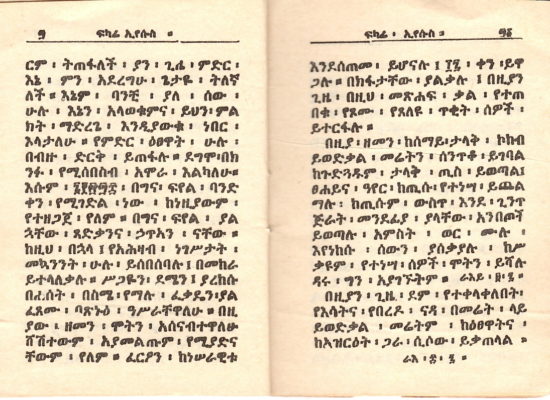 ፱ ፍካሬ ፡ ኢየሱስ ።
ርም ፡ ትጠፋለች ፡ ያን ፡ ጊዜ ፡ ምድር ፡
እኔ ፡ ምን ፡ አደረግሁ ፡ ጌታዬ ፡ ትለኛ
ለች ። እኔም ፡ ባንቺ ፡ ያለ ፡ ሰው ፡
ሁሉ ፡ እኔን ፡ አላወቁምና ፡ ይህን ፡ ምል
ክት ፡ ማድረጌ ፡ እንዲያውቁ ፡ ነበር ፡
እላታለሁ ። የምድር ፡ ዕፀዋት ፡ ሁሉ ፡
በብዙ ፡ ድርቅ ፡ ይጠፋሉ ። ደግሞ ፡ በክ
ንፉ ፡ የሚሰበስብ ፡ አሞራ ፡ እልካለሁ ።
እሱም ፡ በግና ፡ ፍየል ፡ ባንድ
ቀን ፡ የሚገድል ፡ ነው ፡ ከነዚያውም ፡
የተዘጋጀ ፡ የለም ። በግና ፡ ፍየል ፡ ያል
ኋቸው ፡ ጻድቃንና ፡ ኃጥአን ፡ ናቸው ።
ከዚህ ፡ በኋላ ፤ የአሕዛብ ፡ ነገሥታት ፡
መኳንንት ፡ ሁሉ ፡ ይሰበሰባሉ ፤ በመከራ
ይተላለቃሉ ። ሥጋዬን ፡ ደሜን ፤ ያረከሱ
በሐሰት ፡ በስሜ ፡ የማሉ ፡ ፈቃዴን ፡ ያል
ፈጸሙ ፡ ባጽኑዕ ፡ ዓሥራቸዋለሁ ። በዚ
ያው ፡ ዘመን ፡ ሞትን ፡ አሰናብተዋለሁ
ሸሽተውም ፡ አያመልጡም ፡ የሚያድና
ቸውም ፡ የለም ። ፈርዖን ፡ ከነሠራዊቱ
ፍካሬ ፡ ኢየሱስ ።
እንደሰጠመ ፡ ይሆናሉ ፤ ፲፯ ፡ ቀን ፡ ይዋ
ጋሉ ። በክፋታቸው ፡ ያልቃሉ ፤ በዚያን
ጊዜ ፡ በዚህ ፡ መጽሐፍ ፡ ቃል ፡ የተጠ
በቁ ፡ የጾሙ ፡ የጸለዩ ፡ ጥቂት ፡ ሰዎች ፡
ይተርፋሉ ።
በዚያ ፡ ዘመን ፡ ከሰማይ ፡ ታላቅ ፡ ኮከብ
ይወድቃል ፡ መሬትን ፡ ሰንጥቆ ፡ ይገባል
ከጉድጓዱም ፡ ታላቅ ፡ ጢስ ፡ ይወጣል ፤
ፀሐይና ፡ ዓየር ፡ ከጢሱ ፡ የተነሣ ፡ ይጨል
ማሉ ፡ ከጢሱም ፡ ውስጥ ፡ እንደ ፡ ጊንጥ
ጅራት ፡ መንደፊያ ፡ ያላቸው ፡ አንበጦች
ይወጣሉ ፡ አምስት ፡ ወር ፡ ሙሉ ፡
እየነከሱ ፡ ሰውን ፡ ያሰቃያሉ ፡ ከሥ
ቃዩም ፡ የተነሣ ፡ ሰዎች ፡ ሞትን ፡ ይሻሉ
ዳሩ ፡ ግን ፡ አያገኙትም ። ራእይ ፡
በዚያን ፡ ጊዜ ፡ ደም ፡ የተቀላቀለበት ፡
የእሳትና ፡ የበረዶ ፡ ናዳ ፡ በመሬት ፡ ላይ
ይወድቃል ፡ መሬትም ፡ ከዕፀዋትና ፡
ከአዝርዕት ፡ ጋራ ፡ ሲሶው ፡ ይቃጠላል ።
ራእ ፡ ፰ ፡ ፯ ፡